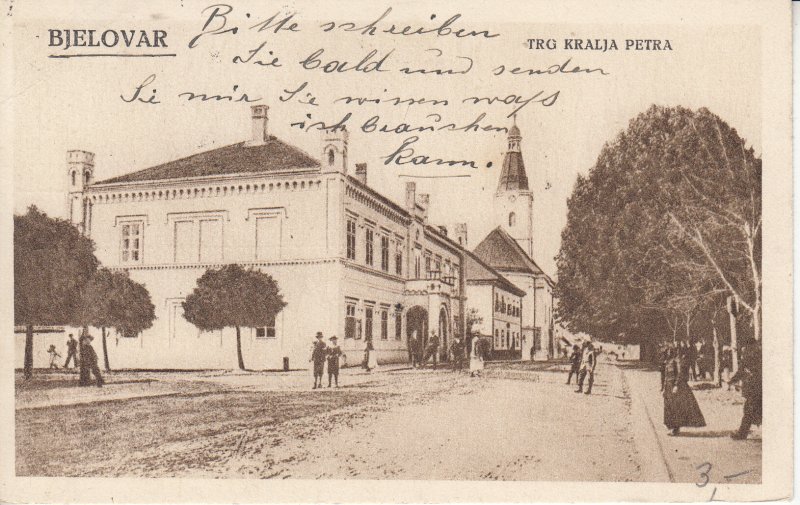 BJELOVAR
TRG KRALJA PETRA
Bitte schreiben
Sie bald und senden
Sie mir, Sie wissen was
ich brauchen
kann.
3,-